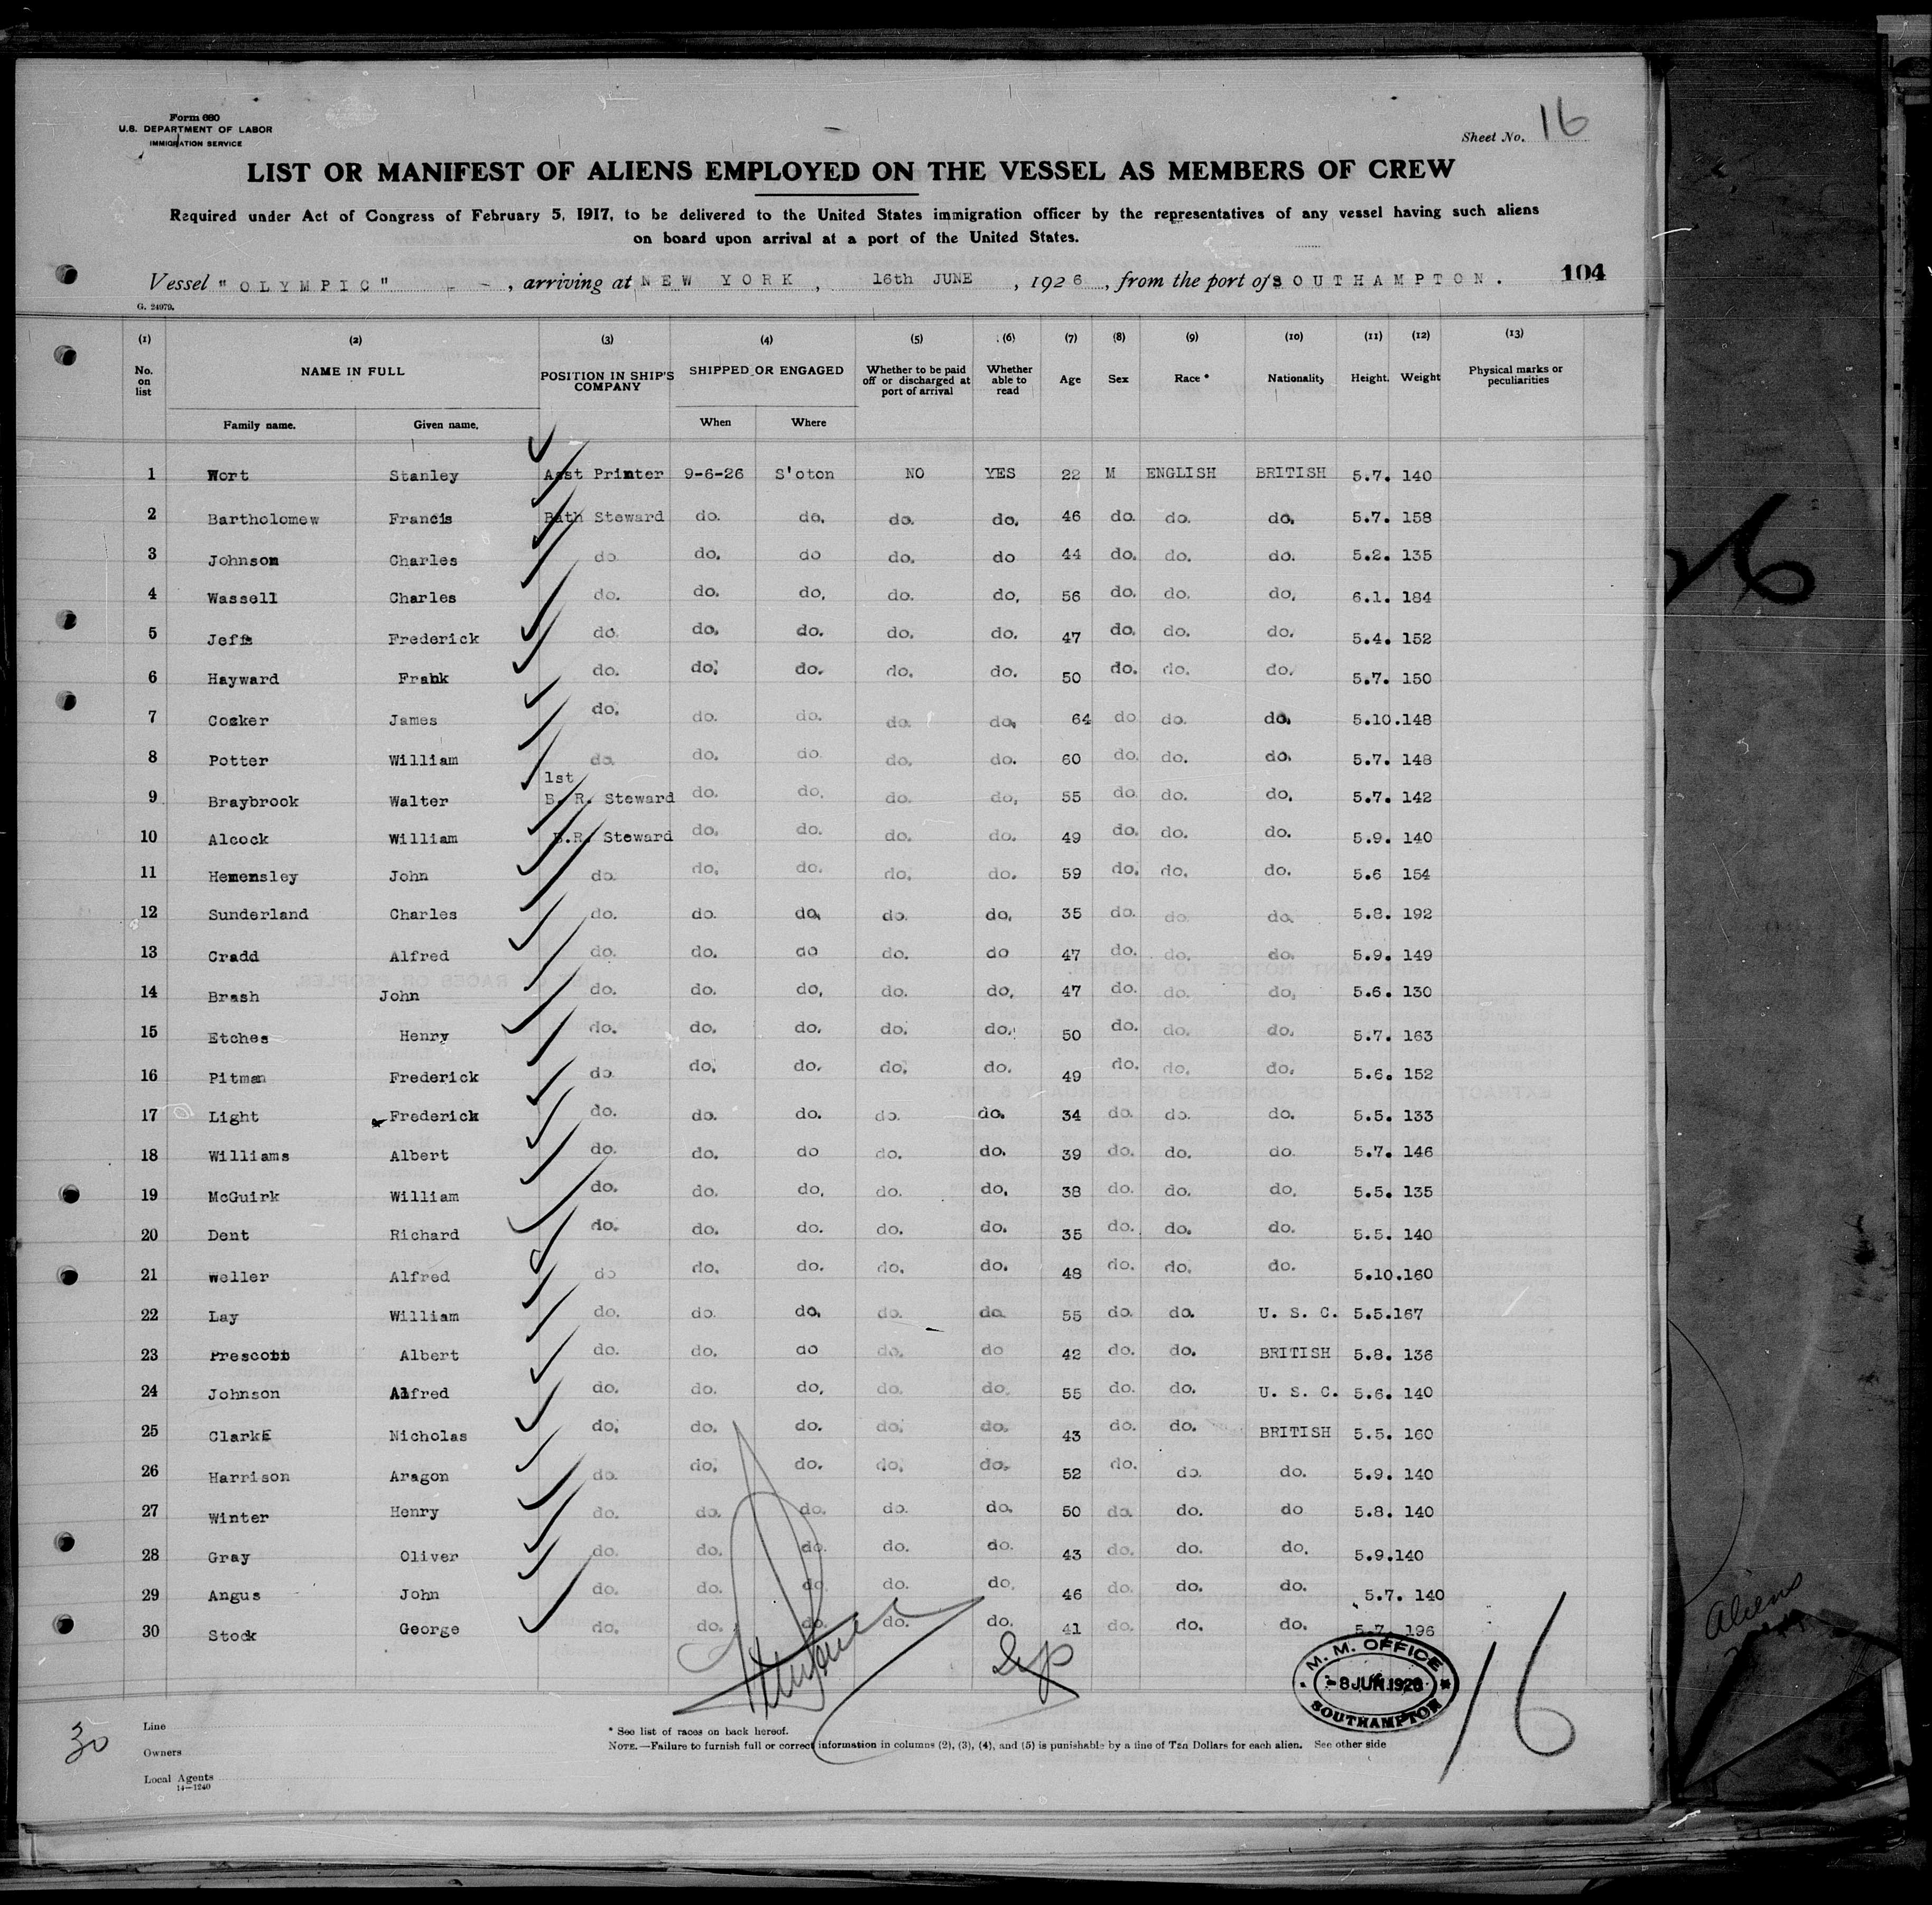 Form 680
U.S. DEPARTMENT OF LABOR
IMMIGRATION SERVICE
Sheet No. 16
LIST OR MANIFEST OF ALIENS EMPLOYED ON THE VESSEL AS MEMBERS OF CREW
Required under Act of Congress of February 5, 1917, to be delivered to the United States immigration officer by the representatives of any vessel having such aliens
on board upon arrival at a port of the United States.
Vessel "OLYMPIC" - - , arriving at NEW YORK , 16th JUNE , 1926 , from the port of SOUTHAMPTON. 104
G. 24979.
(1) (2) (3) (4) (5) (6) (7) (8) (9) (10) (11) (12) (13)
No. on list NAME IN FULL POSITION IN SHIP'S COMPANY SHIPPED OR ENGAGED Whether to be paid off or discharged at port of arrival Whether able to read Age Sex Race * Nationality Height. Weight Physical marks or peculiarities
Family name. Given name. When Where
1 Wort Stanley Asst Printer 9-6-26 S'oton NO YES 22 M ENGLISH BRITISH 5.7. 140
2 Bartholomew Francis Bath Steward do. do. do. do. 46 do. do. do. 5.7. 158
3 Johnson Charles do do. do do. do 44 do. do. do. 5.2. 135
4 Wassell Charles do. do. do. do. do. 56 do. do. do. 6.1. 184
5 Jeffs Frederick do. do. do. do. do. 47 do. do. do. 5.4. 152
6 Hayward Frank do. do. do. do. do. 50 do. do. do. 5.7. 150
7 Cosker James do. do. do. do. do. 64 do do. do. 5.10.148
8 Potter William do. do. do do. do. 60 do. do. do. 5.7. 148
9 Braybrook Walter 1st B. R. Steward do. do. do. do. 55 do do. do. 5.7. 142
10 Alcock William B.R. Steward do. do. do. do. 49 do. do. do. 5.9. 140
11 Hemensley John do. do. do. do. do. 59 do. do. do. 5.6 154
12 Sunderland Charles do. do. do. do. do. 35 do. do. do. 5.8. 192
13 Cradd Alfred do. do. do do. do 47 do. do. do. 5.9. 149
14 Brash John do. do. do. do. do. 47 do. do. do. 5.6. 130
15 Etches Henry do. do. do. do. do. 50 do. do. do. 5.7. 163
16 Pitman Frederick do do. do. do. do. 49 do. do. do. 5.6. 152
17 Light Frederick do. do. do. do. do. 34 do. do. do. 5.5. 133
18 Williams Albert do. do. do do. do. 39 do. do. do 5.7. 146
19 McGuirk William do. do. do. do. do. 38 do. do. do. 5.5. 135
20 Dent Richard do. do. do. do. do. 35 do. do. do. 5.5. 140
21 weller Alfred do do. do. do. do. 48 do. do. do. 5.10.160
22 Lay William do. do. do. do. do. 55 do. do. U. S. C. 5.5.167
23 Prescott Albert do. do. do do. do 42 do. do. BRITISH 5.8. 136
24 Johnson Alfred do. do. do. do. do. 55 do. do. U. S. C. 5.6. 140
25 ClarkE Nicholas do. do. do. do. do. 43 do. do. BRITISH 5.5. 160
26 Harrison Aragon do. do. do. do. do. 52 do. do. do. 5.9. 140
27 Winter Henry do. do. do. do. do. 50 do. do. do 5.8. 140
28 Gray Oliver do. do. do. do. do. 43 do. do. do. 5.9.140
29 Angus John do. do. do do. do. 46 do. do. do. 5.7. 140
30 Stock George do. do. do. do. do. 41 do. do. do. 5.7. 196
M. M. OFFICE
-8 JUN.1926
SOUTHAMPTON
16
30
Line
Owners
Local Agents
14-1240
* See list of races on back hereof.
NOTE.—Failure to furnish full or correct information in columns (2), (3), (4), and (5) is punishable by a fine of Ten Dollars for each alien. See other side
26
Aliens